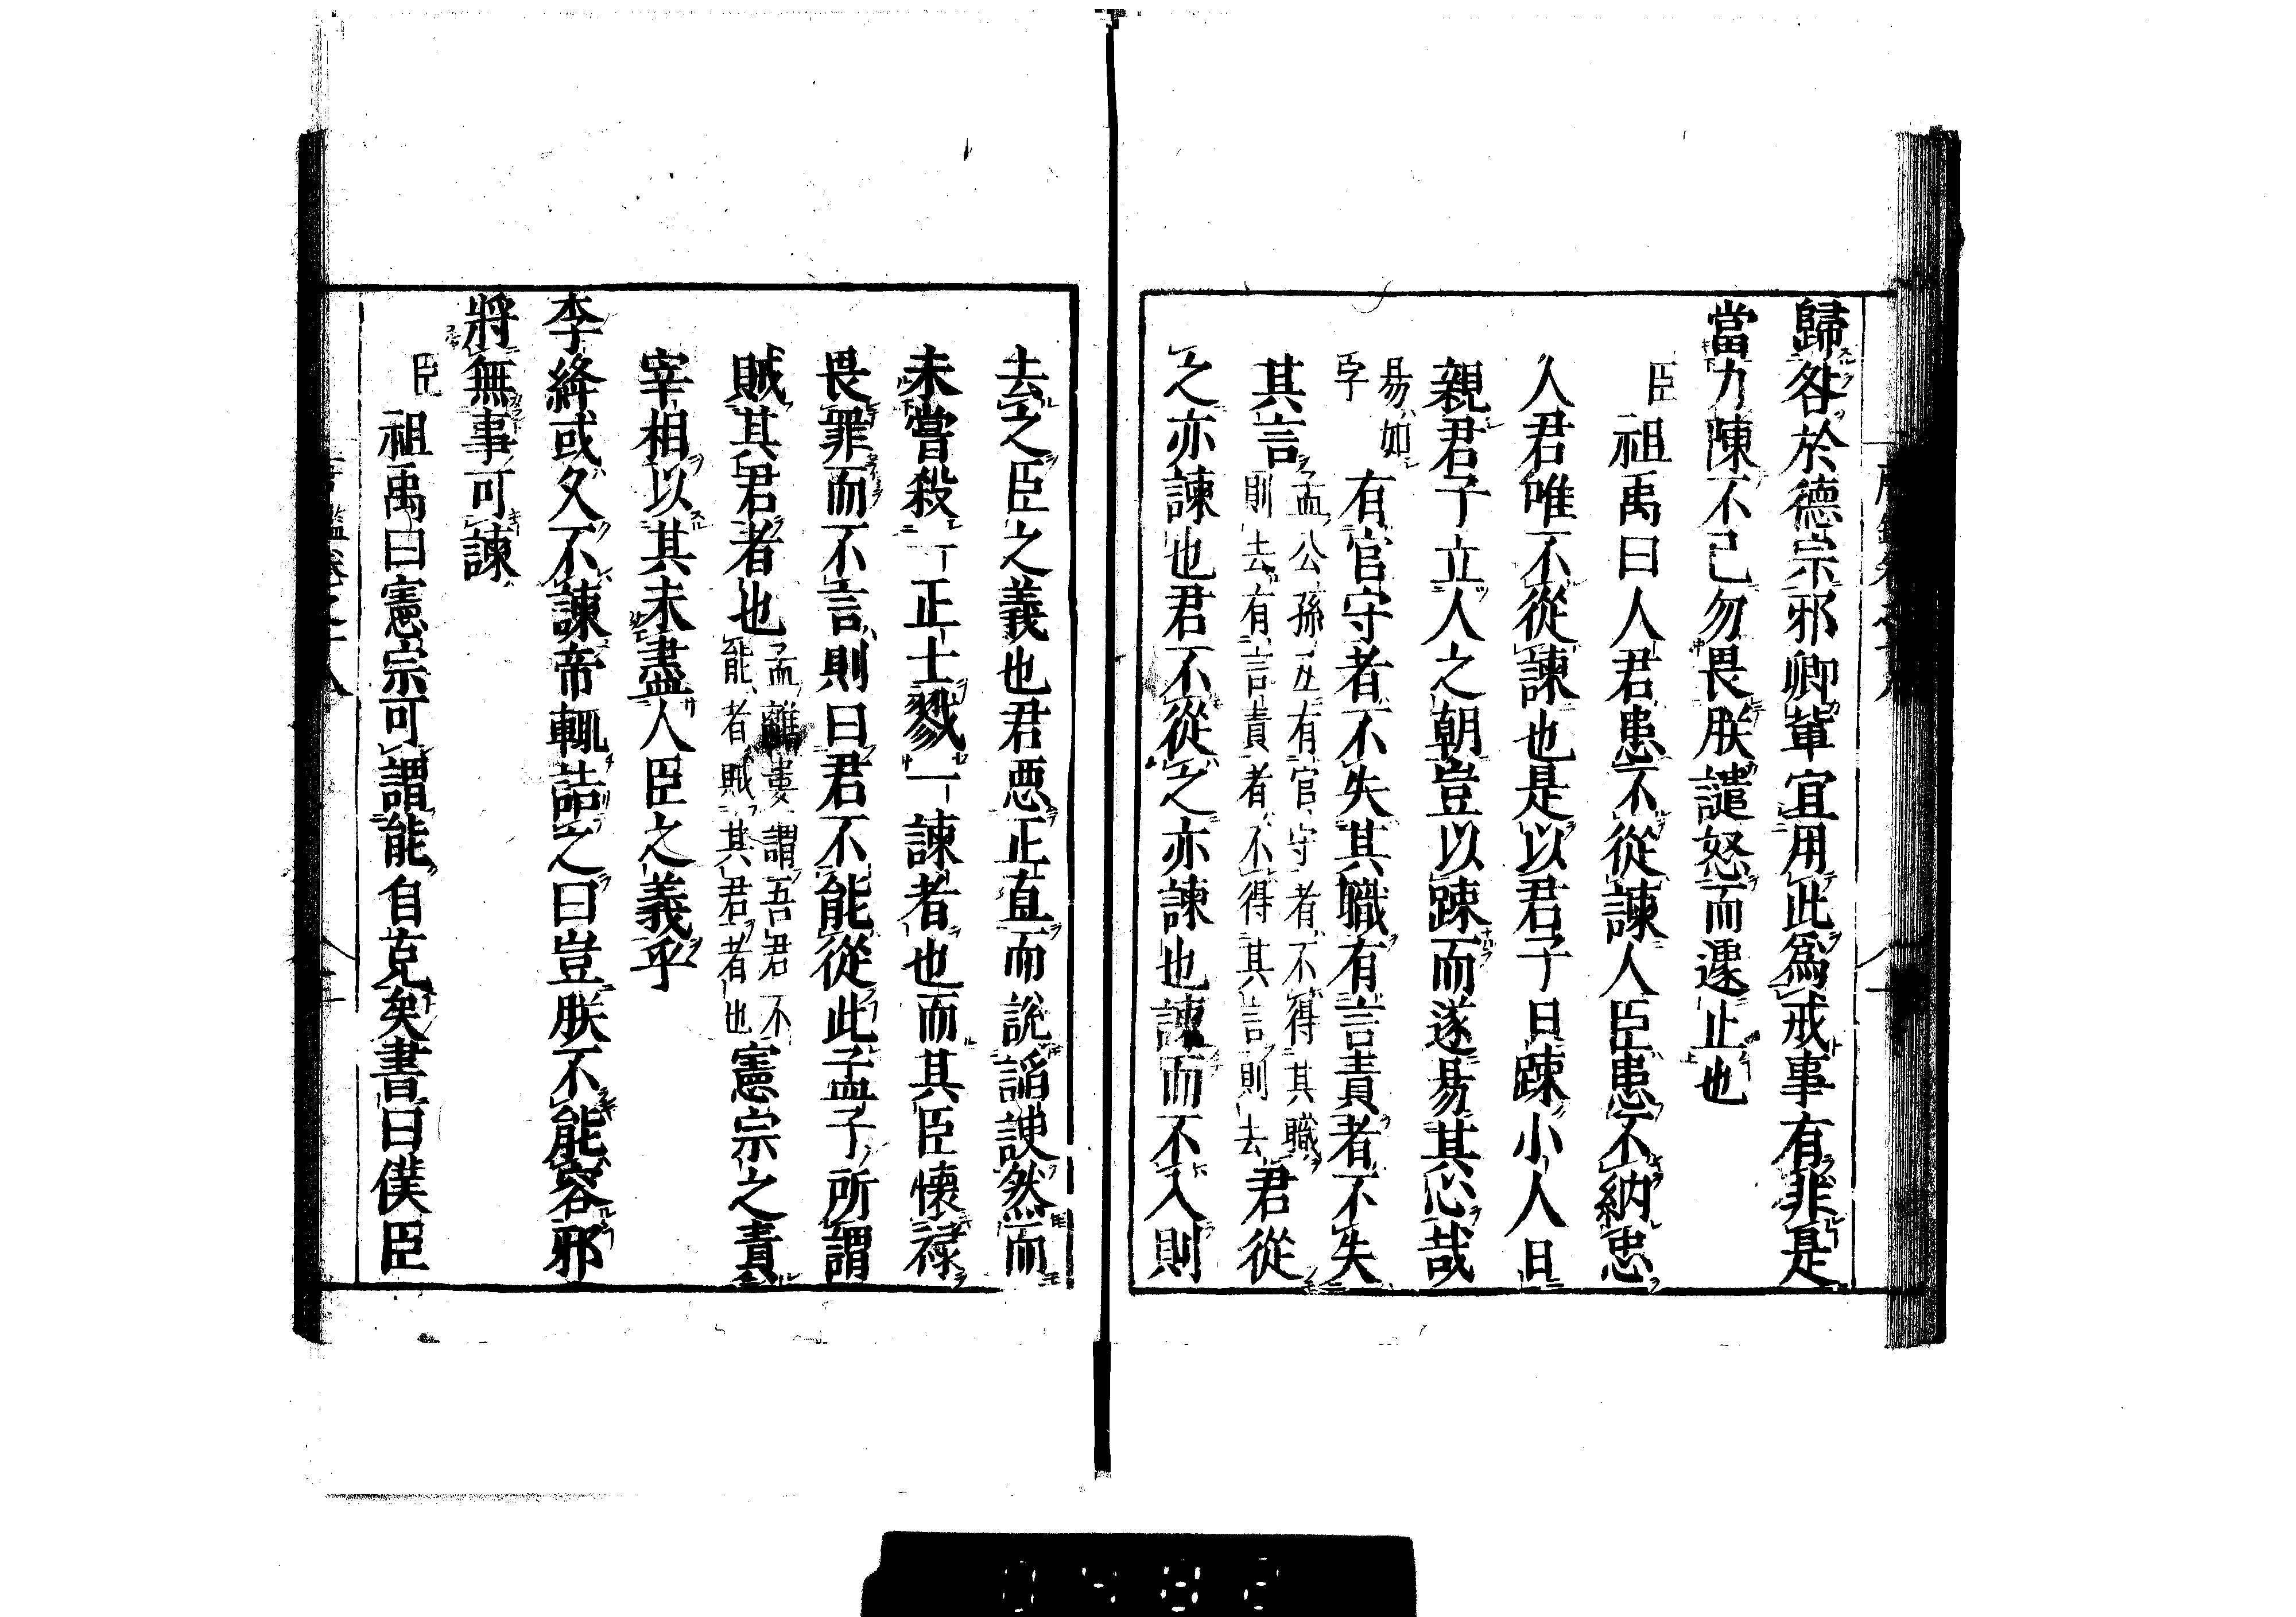 歸咎於德宗邪卿輩宜用此爲戒事有非是
當力陳不已勿畏朕譴怒而遽止也
臣祖禹曰人君患不從諫人臣患不納忠
人君唯不從諫也是以君子日踈小人日
親君子立人之朝豈以踈而遂易其心哉
易如
字
有官守者不失其職有言責者不失
其言
孟公孫丑有官守者不得其職
則去有言責者不得其言則去
君從
之亦諫也君不從之亦諫也諫而不入則
去之臣之義也君惡正直而說諂諛然而
未嘗殺一正士戮一諫者也而其臣懷祿
畏罪而不言則曰君不能從此孟子所謂
賊其君者也
孟離婁謂吾君不
能者賊其君者也
憲宗之責
宰相以其未盡人臣之義乎
李絳或久不諫帝輒詰之曰豈朕不能容邪
將無事可諫
臣祖禹曰憲宗可謂能自克矣書曰僕臣